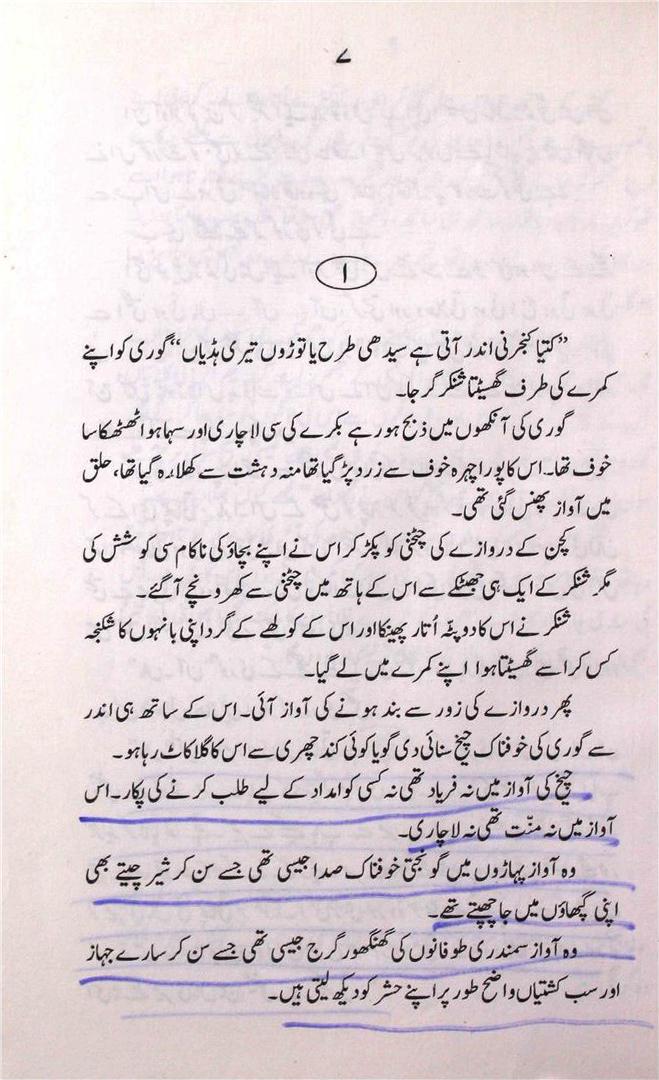 ۷
۱
”کتیا کنجرنی اندر آتی ہے سیدھی طرح یا توڑوں تیری ہڈیاں“ گوری کو اپنے
کمرے کی طرف گھسیٹتا شنکر گرجا۔
گوری کی آنکھوں میں ذبح ہو رہے بکرے کی سی لاچاری اور سہما ہوا ٹھٹھکا سا
خوف تھا۔ اس کا پورا چہرہ خوف سے زرد پڑ گیا تھا منہ دہشت سے کھلا رہ گیا تھا، حلق
میں آواز پھنس گئی تھی۔
کچن کے دروازے کی چٹخنی کو پکڑ کر اس نے اپنے بچاؤ کی ناکام سی کوشش کی
مگر شنکر کے ایک ہی جھٹکے سے اس کے ہاتھ میں چٹخنی سے کھرونچے آ گئے۔
شنکر نے اس کا دوپٹّہ اُتار پھینکا اور اس کے کولھے کے گرد اپنی بانہوں کا شکنجہ
کس کر اسے گھسیٹتا ہوا اپنے کمرے میں لے گیا۔
پھر دروازے کی زور سے بند ہونے کی آواز آئی۔ اس کے ساتھ ہی اندر
سے گوری کی خوفناک چیخ سنائی دی گویا کوئی کند چھری سے اس کا گلا کاٹ رہا ہو۔
چیخ کی آواز میں نہ فریاد تھی نہ کسی کو امداد کے لیے طلب کرنے کی پکار۔ اس
آواز میں نہ منّت تھی نہ لاچاری۔
وہ آواز پہاڑوں میں گونجتی خوفناک صدا جیسی تھی جسے سن کر شیر چیتے بھی
اپنی گپھاؤں میں جا چھپتے تھے۔
وہ آواز سمندری طوفانوں کی گھنگھور گرج جیسی تھی جسے سن کر سارے جہاز
اور سب کشتیاں واضح طور پر اپنے حشر کو دیکھ لیتی ہیں۔